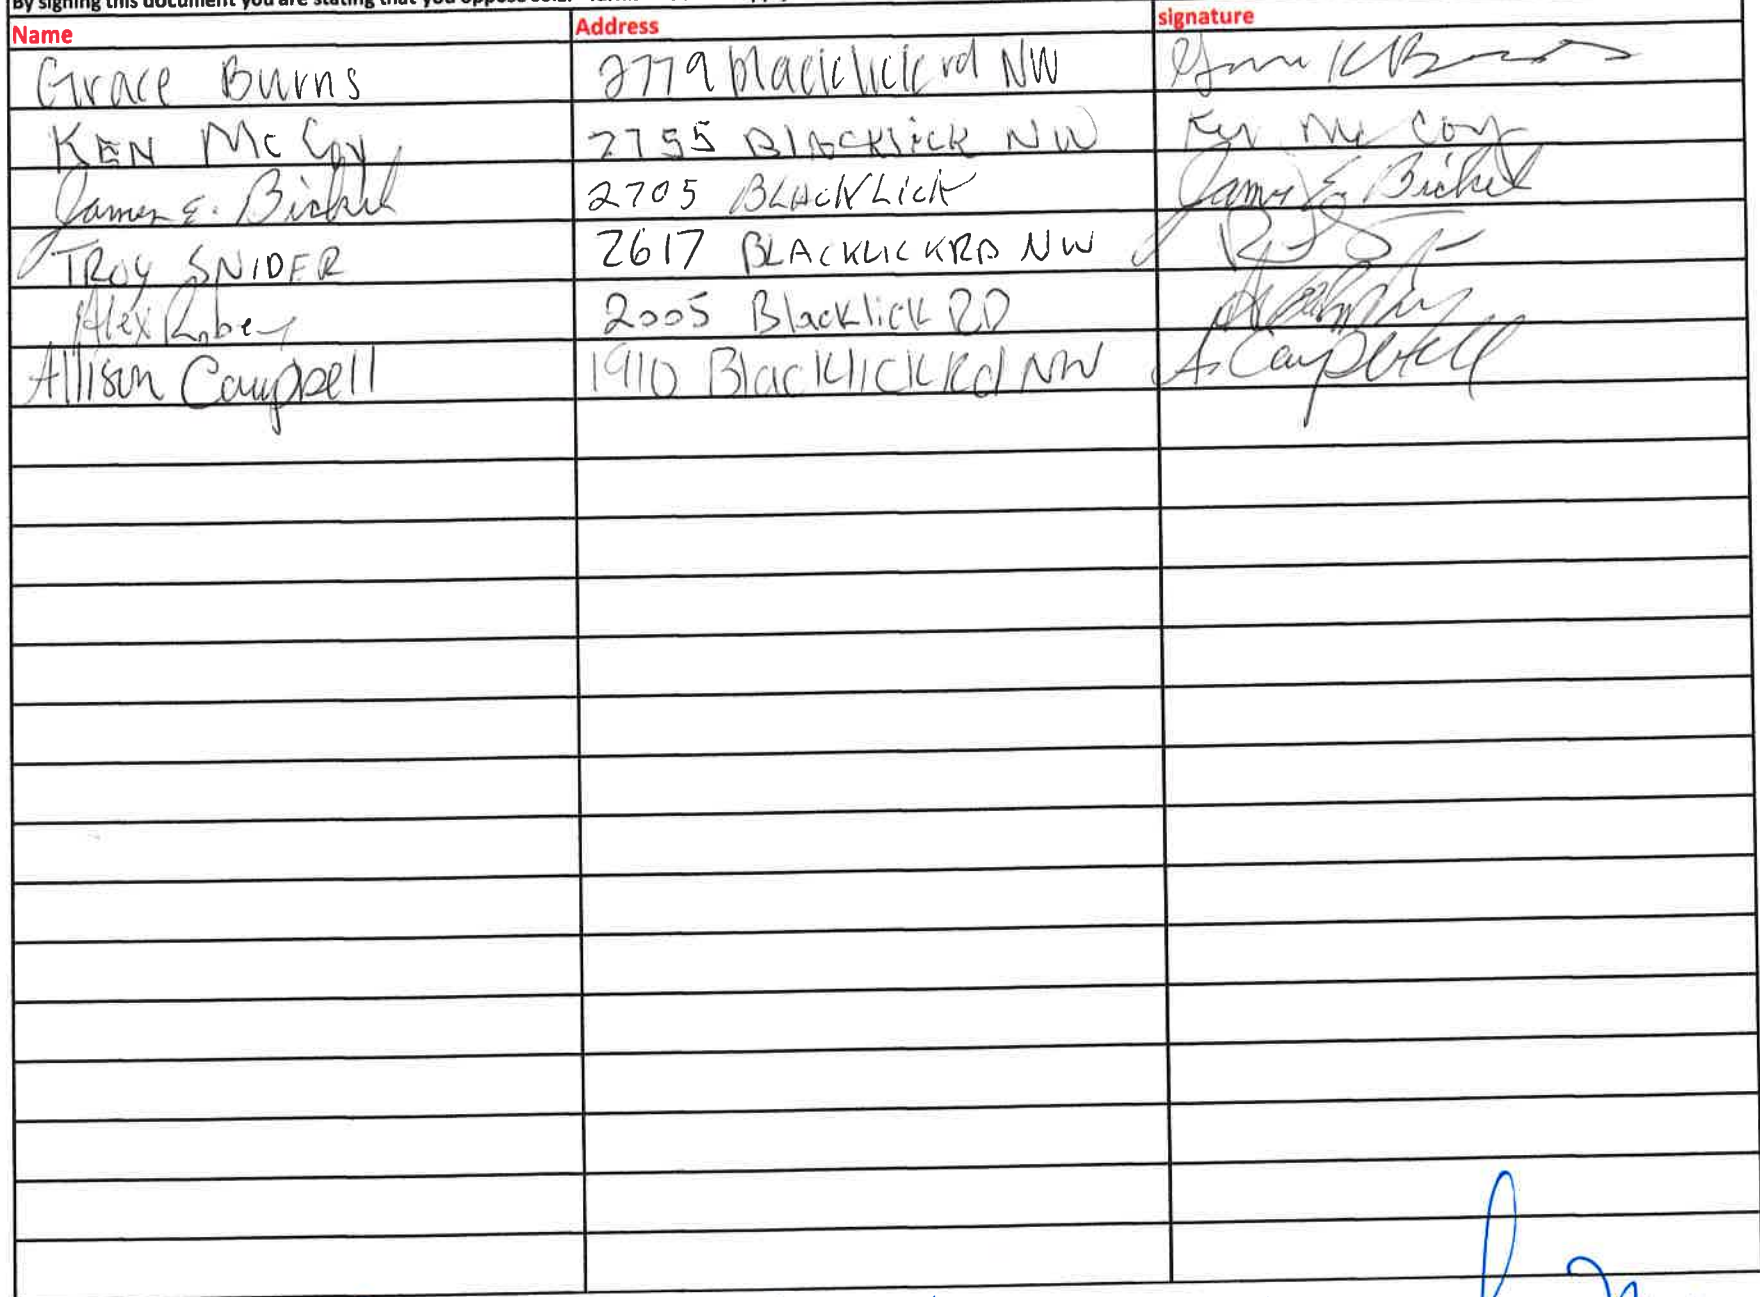 By signing this document you are stating that you oppose
Name Address signature
Grace Burns 2779 blacklick rd NW
KEN McCoy 2755 Blacklick NW Ken McCoy
James E. Bickel 2705 BLACKLick James E. Bickel
TROY SNIDER 2617 BLACKLICK RD NW
Alex Robey 2005 Blacklick RD
Allison Campbell 1910 Blacklick Rd NW A. Campbell